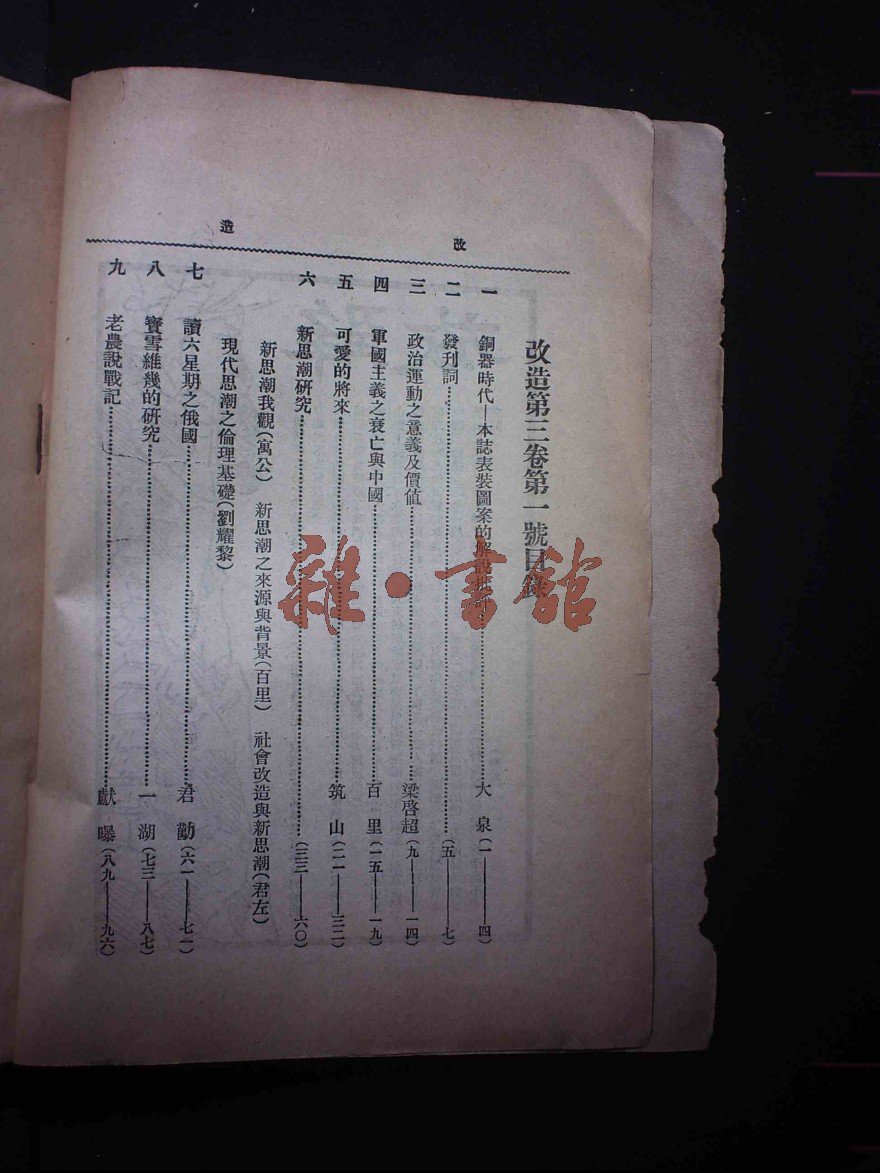 改造
改造第三卷第一號目錄
一 銅器時代—本誌表裝圖案的解說批評……大泉(一——四)
二 發刊詞……(五——七)
三 政治運動之意義及價值……梁啓超(九——一四)
四 軍國主義之衰亡與中國……百里(一五——一九)
五 可愛的將來……筑山(二一——三二)
六 新思潮研究……(三三——六〇)
新思潮我觀(寓公) 新思潮之來源與背景(百里) 社會改造與新思潮(君左)
現代思潮之倫理基礎(劉耀黎)
七 讀六星期之俄國……君勱(六一——七一)
八 寶雪維幾的研究……一湖(七三——八七)
九 老農說戰記……獻曝(八九——九六)
雜·書館